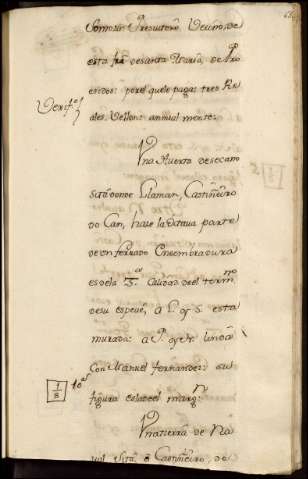 Presuitero, Vecino, de
esta fra de santa Maria, de
por el que le paga tres Rs
Vellon annualmente:
Una Huerta de secano
sita donde Llaman, Castiñeiro
do Can, haze la octava parte
de un ferrado En sembradura
es de la 3.ª Calidad del termno
de su especie, a L. y S. esta
murada: a P. y N. linda
Con Manuel fernandez: su
figura es la del margn:
1/8
Una tierra de Na
val sita, o Castiñeiro, do